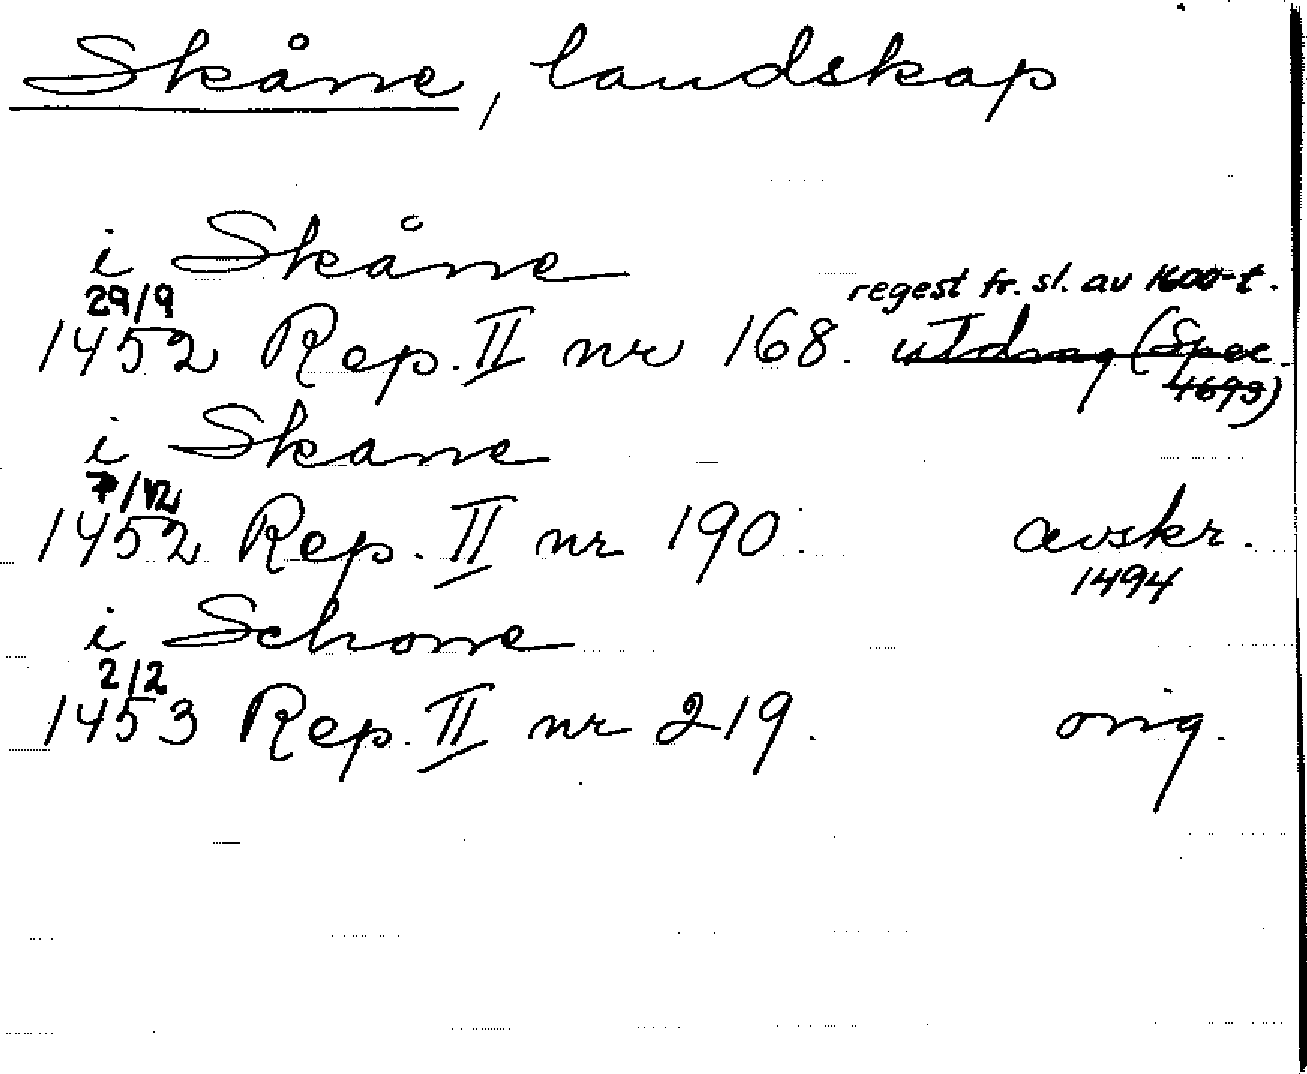 Skåne, landskap
i Skåne
29/9 regest fr. sl. av 1600-t.
1452 Rep. II nr 168. utdrag (Spec.
4693)
i Skane
7/12
1452 Rep. II nr 190. avskr.
1494
i Schone
2/2
1453 Rep. II nr 219. orig.